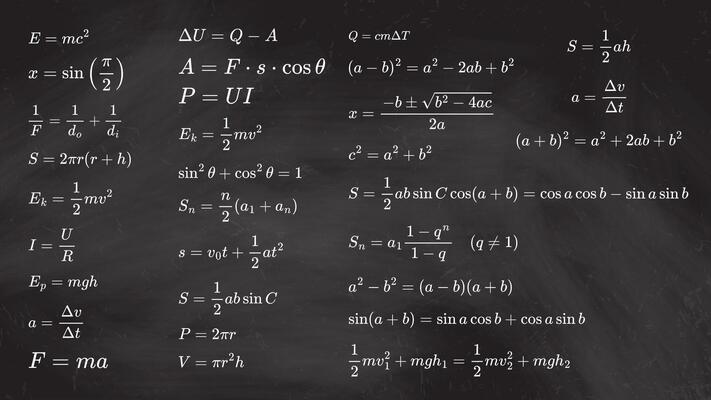 E = mc²
x = sin(π/2)
1/F = 1/d_o + 1/d_i
S = 2πr(r + h)
E_k = 1/2 mv²
I = U/R
E_p = mgh
a = Δv/Δt
F = ma
ΔU = Q − A
A = F · s · cos θ
P = UI
E_k = 1/2 mv²
sin² θ + cos² θ = 1
S_n = n/2 (a₁ + a_n)
s = v₀t + 1/2 at²
S = 1/2 ab sin C
P = 2πr
V = πr²h
Q = cmΔT
(a − b)² = a² − 2ab + b²
x = (−b ± √(b² − 4ac))/2a
c² = a² + b²
S = 1/2 ab sin C cos(a + b) = cos a cos b − sin a sin b
S_n = a₁ (1 − qⁿ)/(1 − q) (q ≠ 1)
a² − b² = (a − b)(a + b)
sin(a + b) = sin a cos b + cos a sin b
1/2 mv₁² + mgh₁ = 1/2 mv₂² + mgh₂
S = 1/2 ah
a = Δv/Δt
(a + b)² = a² + 2ab + b²